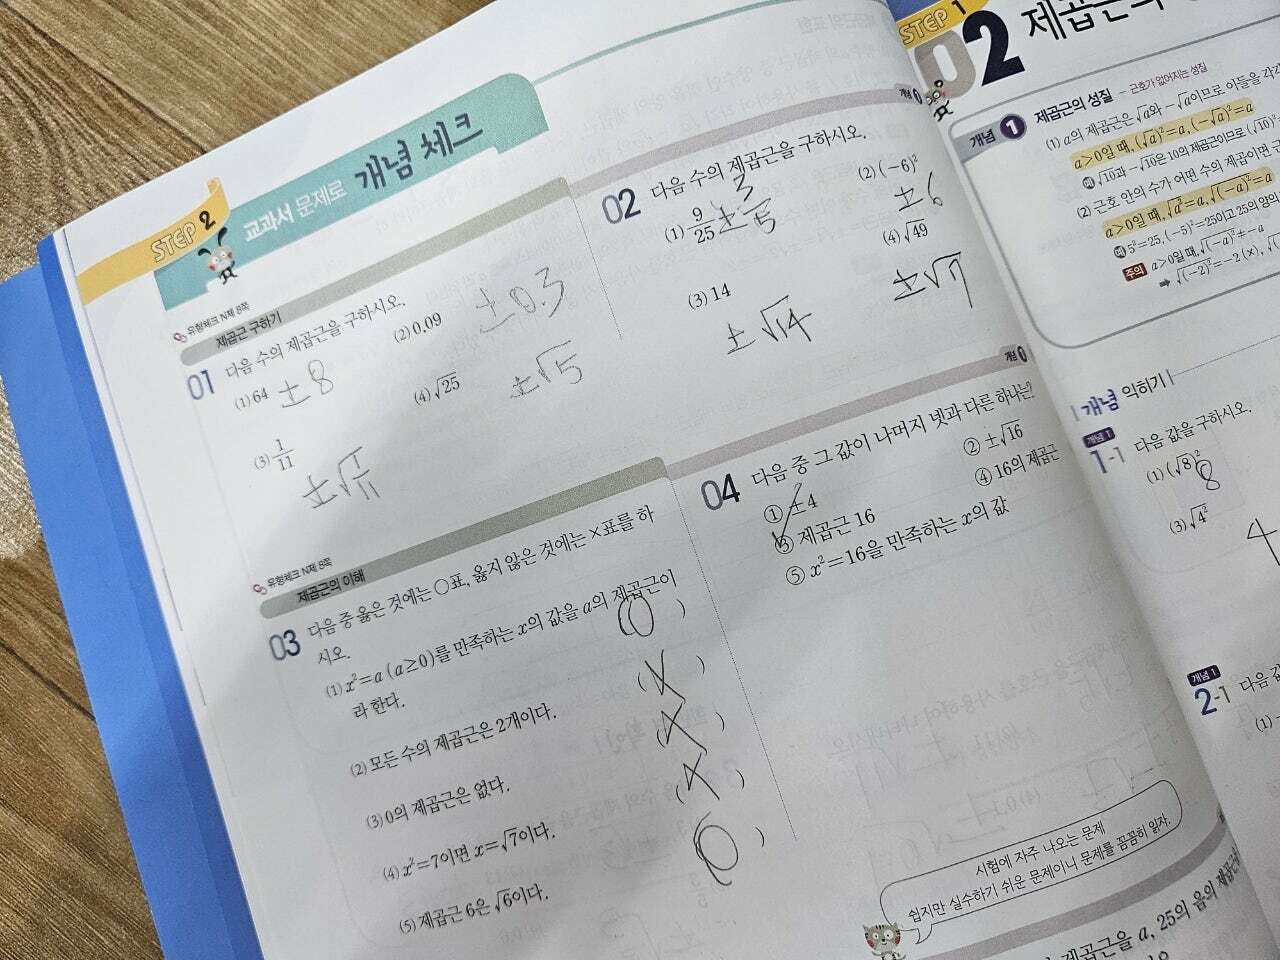 STEP 2
교과서 문제로 개념 체크
유형체크 N제 8쪽
제곱근 구하기
01 다음 수의 제곱근을 구하시오.
(1) 64 ±8
(2) 0.09 ±0.3
(3) 1/11 ±√1/11
(4) √25 ±√5
개념 1
02 다음 수의 제곱근을 구하시오.
(1) 9/25 ±3/5
(2) (-6)² ±6
(3) 14 ±√14
(4) √49 ±√7
유형체크 N제 8쪽
제곱근의 이해
03 다음 중 옳은 것에는 ○표, 옳지 않은 것에는 ×표를 하
시오.
(1) x²=a (a≥0)를 만족하는 x의 값을 a의 제곱근이
라 한다. ( O )
(2) 모든 수의 제곱근은 2개이다. ( X )
(3) 0의 제곱근은 없다. ( X )
(4) x²=7이면 x=√7이다. ( X )
(5) 제곱근 6은 √6이다. ( O )
개념 1
04 다음 중 그 값이 나머지 넷과 다른 하나는?
① ±4
② ±√16
③ 제곱근 16
④ 16의 제곱근
⑤ x²=16을 만족하는 x의 값
시험에 자주 나오는 문제
쉽지만 실수하기 쉬운 문제이니 문제를 꼼꼼히 읽자.
제곱근을 a, 25의 음의 제곱근
STEP 1
02 제곱근의
개념 1 제곱근의 성질 - 근호가 없어지는 성질
(1) a의 제곱근은 √a와 -√a이므로 이들을 각각
a>0일 때, (√a)²=a, (-√a)²=a
예 √10과 -√10은 10의 제곱근이므로 (√10)²
(2) 근호 안의 수가 어떤 수의 제곱이면 근
a>0일 때, √a²=a, √(-a)²=a
예 5²=25, (-5)²=25이고 25의 양의
주의 a>0일 때, √(-a)²≠-a
➡ √(-2)²=-2 (×),
개념 익히기
개념 1
1-1 다음 값을 구하시오.
(1) (√8)² 8
(3) √4² 4
개념 1
2-1 다음 값
(1)